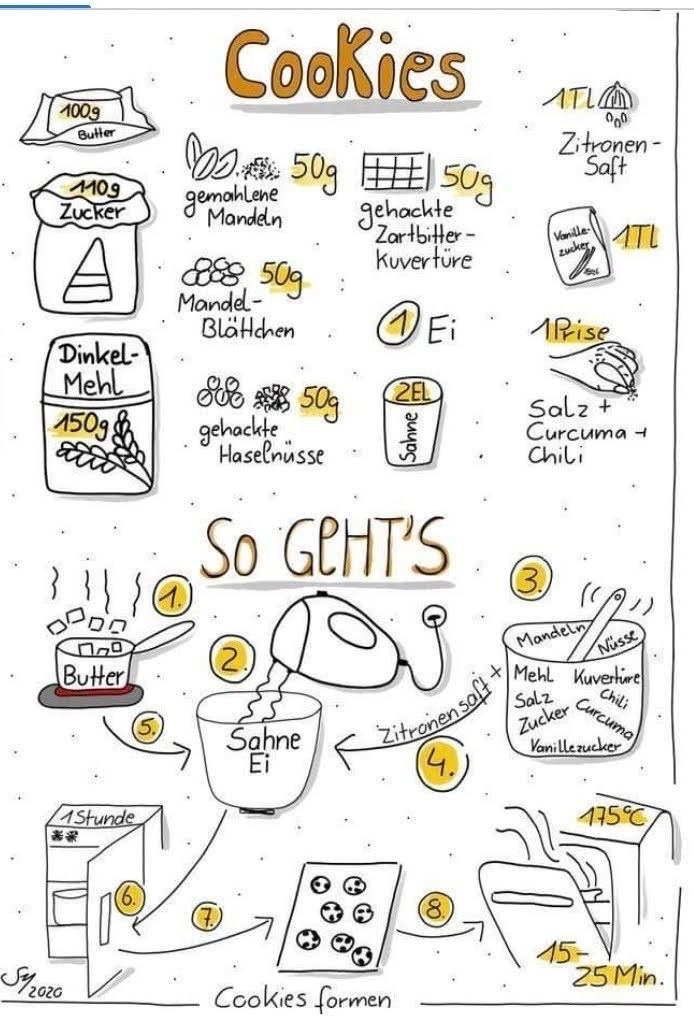 Cookies
100g
Butter
110g
Zucker
Dinkel-
Mehl
150g
50g
gemahlene
Mandeln
50g
Mandel-
Blättchen
50g
gehackte
Haselnüsse
50g
gehackte
Zartbitter-
Kuvertüre
1 Ei
2EL
Sahne
1TL
Zitronen-
Saft
Vanille-
zucker
1TL
1 Prise
Salz +
Curcuma +
Chili
So GEHT'S
1.
Butter
2.
Sahne
Ei
3.
Mandeln
Nüsse
Mehl Kuvertüre
Salz Chili
Zucker Curcuma
Vanillezucker
Zitronensaft +
4.
5.
1 Stunde
6.
7.
8.
175°C
15-
25 Min.
Cookies formen
2020